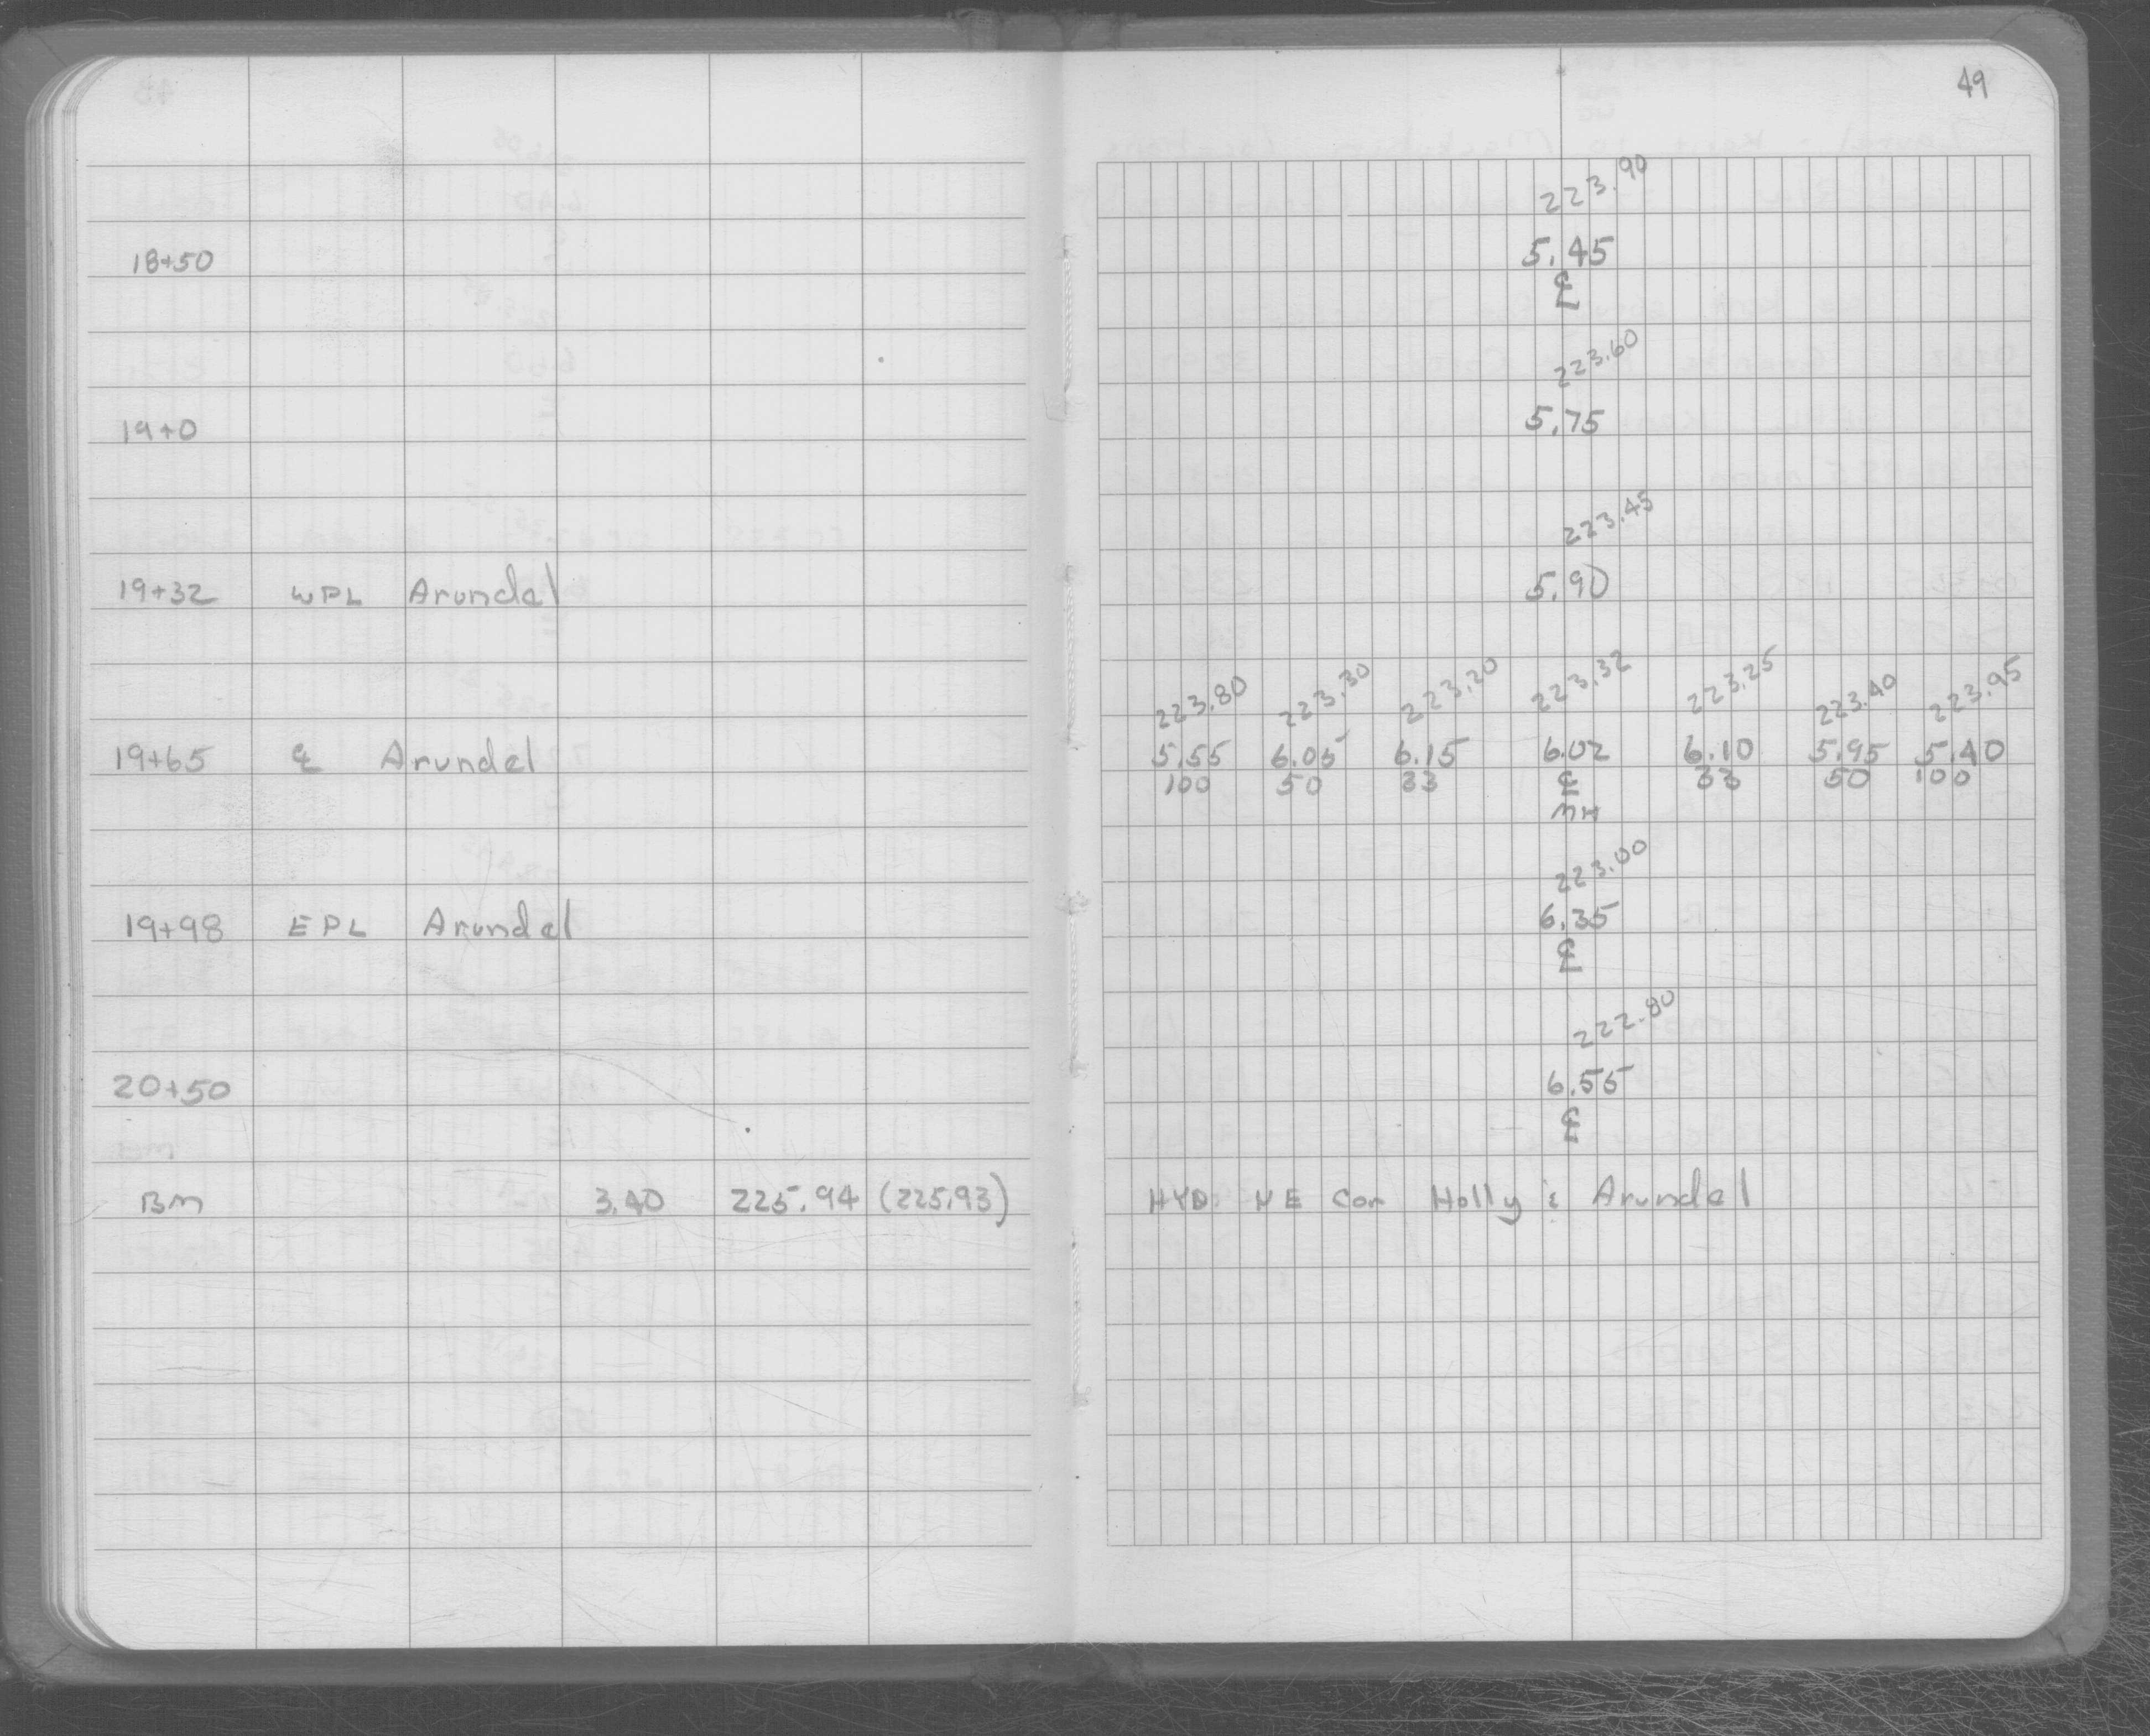 49
223.90
18+50 5.45
℄
223.60
19+0 5.75
223.45
19+32 WPL Arundel 5.90
223.80 223.30 223.20 223.32 223.25 223.40 223.95
19+65 ℄ Arundel 5.55 6.05 6.15 6.02 6.10 5.95 5.40
100 50 33 ℄ 33 50 100
MH
223.00
19+98 EPL Arundel 6.35
℄
222.80
20+50 6.55
℄
BM 3.40 225.94 (225.93) HYD. NE Cor Holly & Arundel